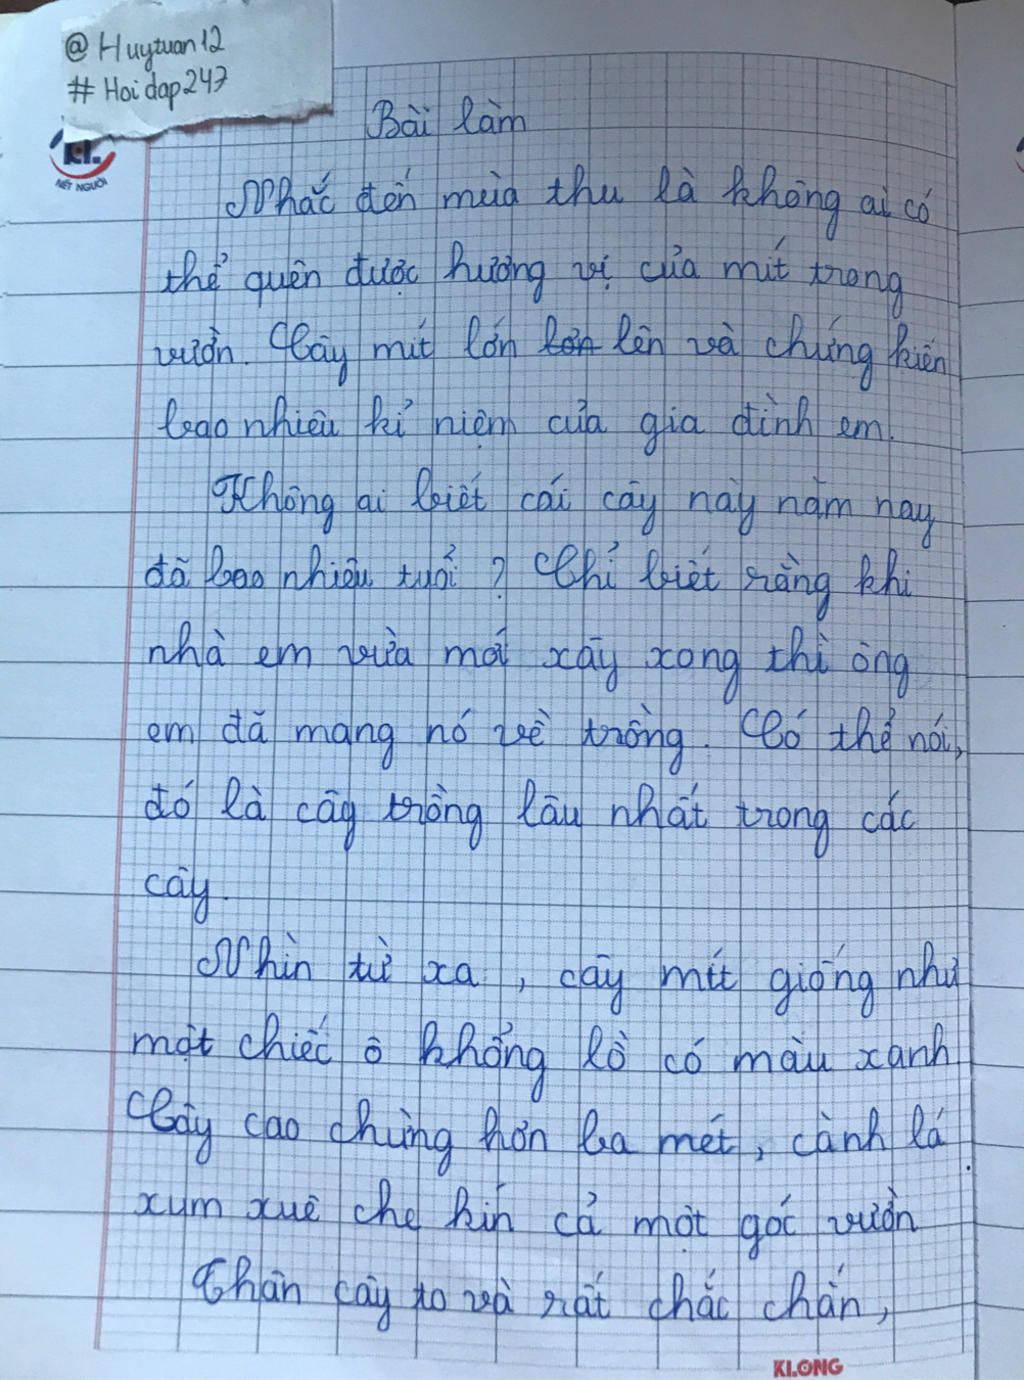 @Huytuan12
#Hoidap247
KL.
NÉT NGƯỜI
Bài làm
Nhắc đến mùa thu là không ai có
thể quên được hương vị của mít trong
vườn. Cây mít lớn lớn lên và chứng kiến
bao nhiêu kỉ niệm của gia đình em.
Không ai biết cái cây này năm nay
đã bao nhiêu tuổi? Chỉ biết rằng khi
nhà em vừa mới xây xong thì ông
em đã mang nó về trồng. Có thể nói,
đó là cây trồng lâu nhất trong các
cây.
Nhìn từ xa, cây mít giống như
một chiếc ô khổng lồ có màu xanh
Cây cao chừng hơn ba mét, cành lá
xum xuê che kín cả một góc vườn
Thân cây to và rất chắc chắn,
KLONG